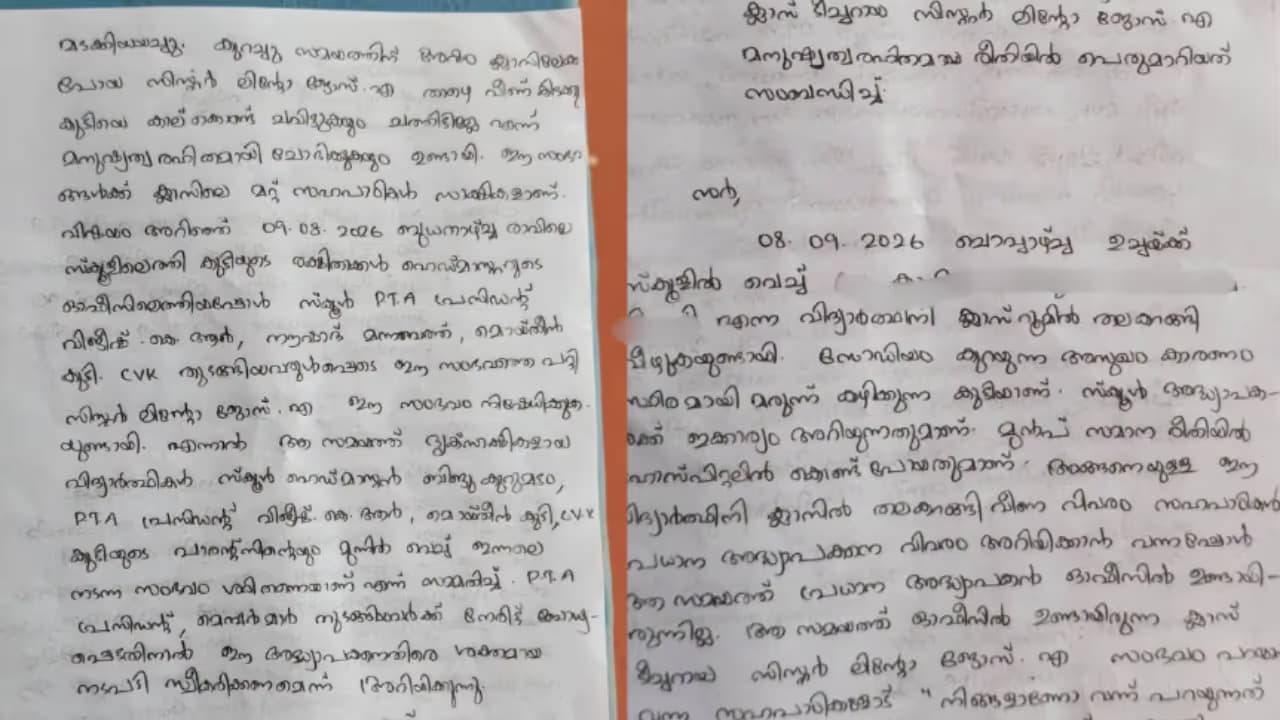 മടക്കിയയച്ചു. കുറച്ചു സമയത്തിന് ശേഷം ക്ലാസിലേക്ക
പോയ സിസ്റ്റർ ലിന്റോ ജോസ്. എ തറഴെ വീണ് കിടക്കു
കുട്ടിയെ കാല് കൊണ്ട് ചവിട്ടുകയും ചത്തിട്ടില്ലേ എന്ന്
മനുഷ്യത്വ രഹിതമായി ചോദിക്കുകയും ഉണ്ടായി. ഈ സംഭവ
ങ്ങൾക്ക് ക്ലാസിലെ മറ്റ് സഹപാഠികൾ സാക്ഷികളാണ്.
വിഷയം അറിഞ്ഞ് 09.08.2026 ബുധനാഴ്ച്ച രാവിലെ
സ്കൂളിലെത്തി കുട്ടിയുടെ രക്ഷിതാക്കൾ ഹെഡ്മാസ്റ്ററുടെ
ഓഫീസിലെത്തിയപ്പോൾ സ്കൂൾ P.T.A പ്രസിഡന്റ്
വിജീഷ്. കെ. ആർ, നൗഷാദ് മണ്ണേത്ത്, മൊയ്തീൻ
കുട്ടി. CVK തുടങ്ങിയവരുൾപ്പെടെ ഈ സംഭവത്തെ പറ്റി
സിസ്റ്റർ ലിന്റോ ജോസ്. എ ഈ സംഭവം നിഷേധിക്കുക-
യുണ്ടായി. എന്നാൽ ആ സമയത്ത് ദൃക്സാക്ഷികളായ
വിദ്യാർത്ഥികൾ സ്കൂൾ ഹെഡ്മാസ്റ്റർ ബിന്ദു കുറുമഠം,
P.T.A പ്രസിഡന്റ് വിജീഷ്. കെ. ആർ, മൊയ്തീൻ കുട്ടി, CVK
കുട്ടിയുടെ പാരന്റ്സിന്റെയും മുന്നിൽ വെച്ച് ഇന്നലെ
നടന്ന സംഭവം ശരിതന്നെയാണ് എന്ന് സമ്മതിച്ച്. P.T.A
പ്രസിഡന്റ്, മെമ്പർമാർ തുടങ്ങിയവർക്ക് നേരിട്ട് ബോധ്യ-
പ്പെട്ടതിനാൽ ഈ അദ്ധ്യാപകനെതിരെ ശക്തമായ
നടപടി സ്വീകരിക്കണമെന്ന് അറിയിക്കുന്നു.
ക്ലാസ് ടീച്ചറായ സിസ്റ്റർ ലിന്റോ ജോസ് എ
മനുഷ്യത്വ രഹിതമായ രീതിയിൽ പെരുമാറിയത്
സംബന്ധിച്ച്.
സർ,
08.09.2026 ചൊവ്വാഴ്ച്ച ഉച്ചയ്ക്ക്
സ്കൂളിൽ വെച്ച്
എന്ന വിദ്യാർത്ഥിനി ക്ലാസ് റൂമിൽ തലകറങ്ങി
വീഴുകയുണ്ടായി. സോഡിയം കുറയുന്ന അസുഖം കാരണം
സ്ഥിരമായി മരുന്ന് കഴിക്കുന്ന കുട്ടിയാണ്. സ്കൂൾ അദ്ധ്യാപക-
ർക്ക് ഇക്കാര്യം അറിയുന്നതുമാണ്. മുൻപ് സമാന രീതിയിൽ
ഹോസ്പിറ്റലിൽ കൊണ്ട് പോയതുമാണ്. അങ്ങനെയുള്ള ഈ
വിദ്യാർത്ഥിനി ക്ലാസിൽ തലകറങ്ങി വീണ വിവരം സഹപാഠികൾ
പ്രധാന അദ്ധ്യാപകനെ വിവരം അറിയിക്കാൻ വന്നപ്പോൾ
ആ സമയത്ത് പ്രധാന അദ്ധ്യാപകൻ ഓഫീസിൽ ഉണ്ടായി-
രുന്നില്ല. ആ സമയത്ത് ഓഫീസിൽ ഉണ്ടായിരുന്ന ക്ലാസ്
ടീച്ചറായ സിസ്റ്റർ ലിന്റോ ജോസ്. എ സംഭവം പറയാ
വന്ന സഹപാഠികളോട് "നിങ്ങളാണോ വന്ന് പറയുന്നത്